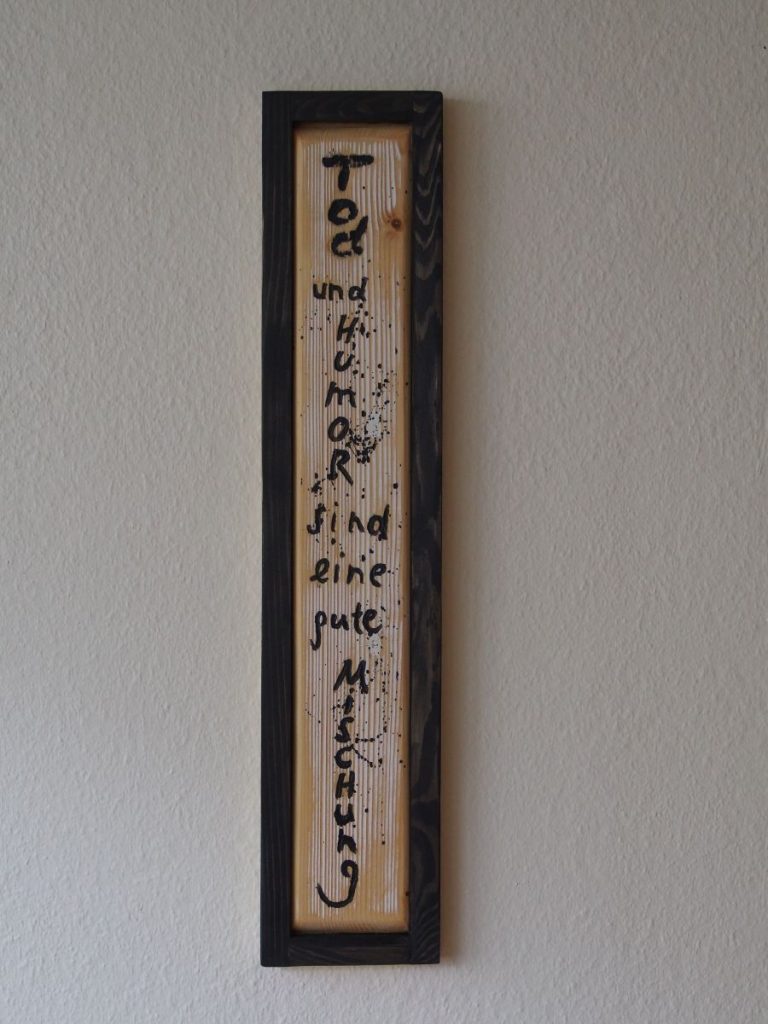 Tod
und
HUmOR
sind
eine
gute
MiSCHUng